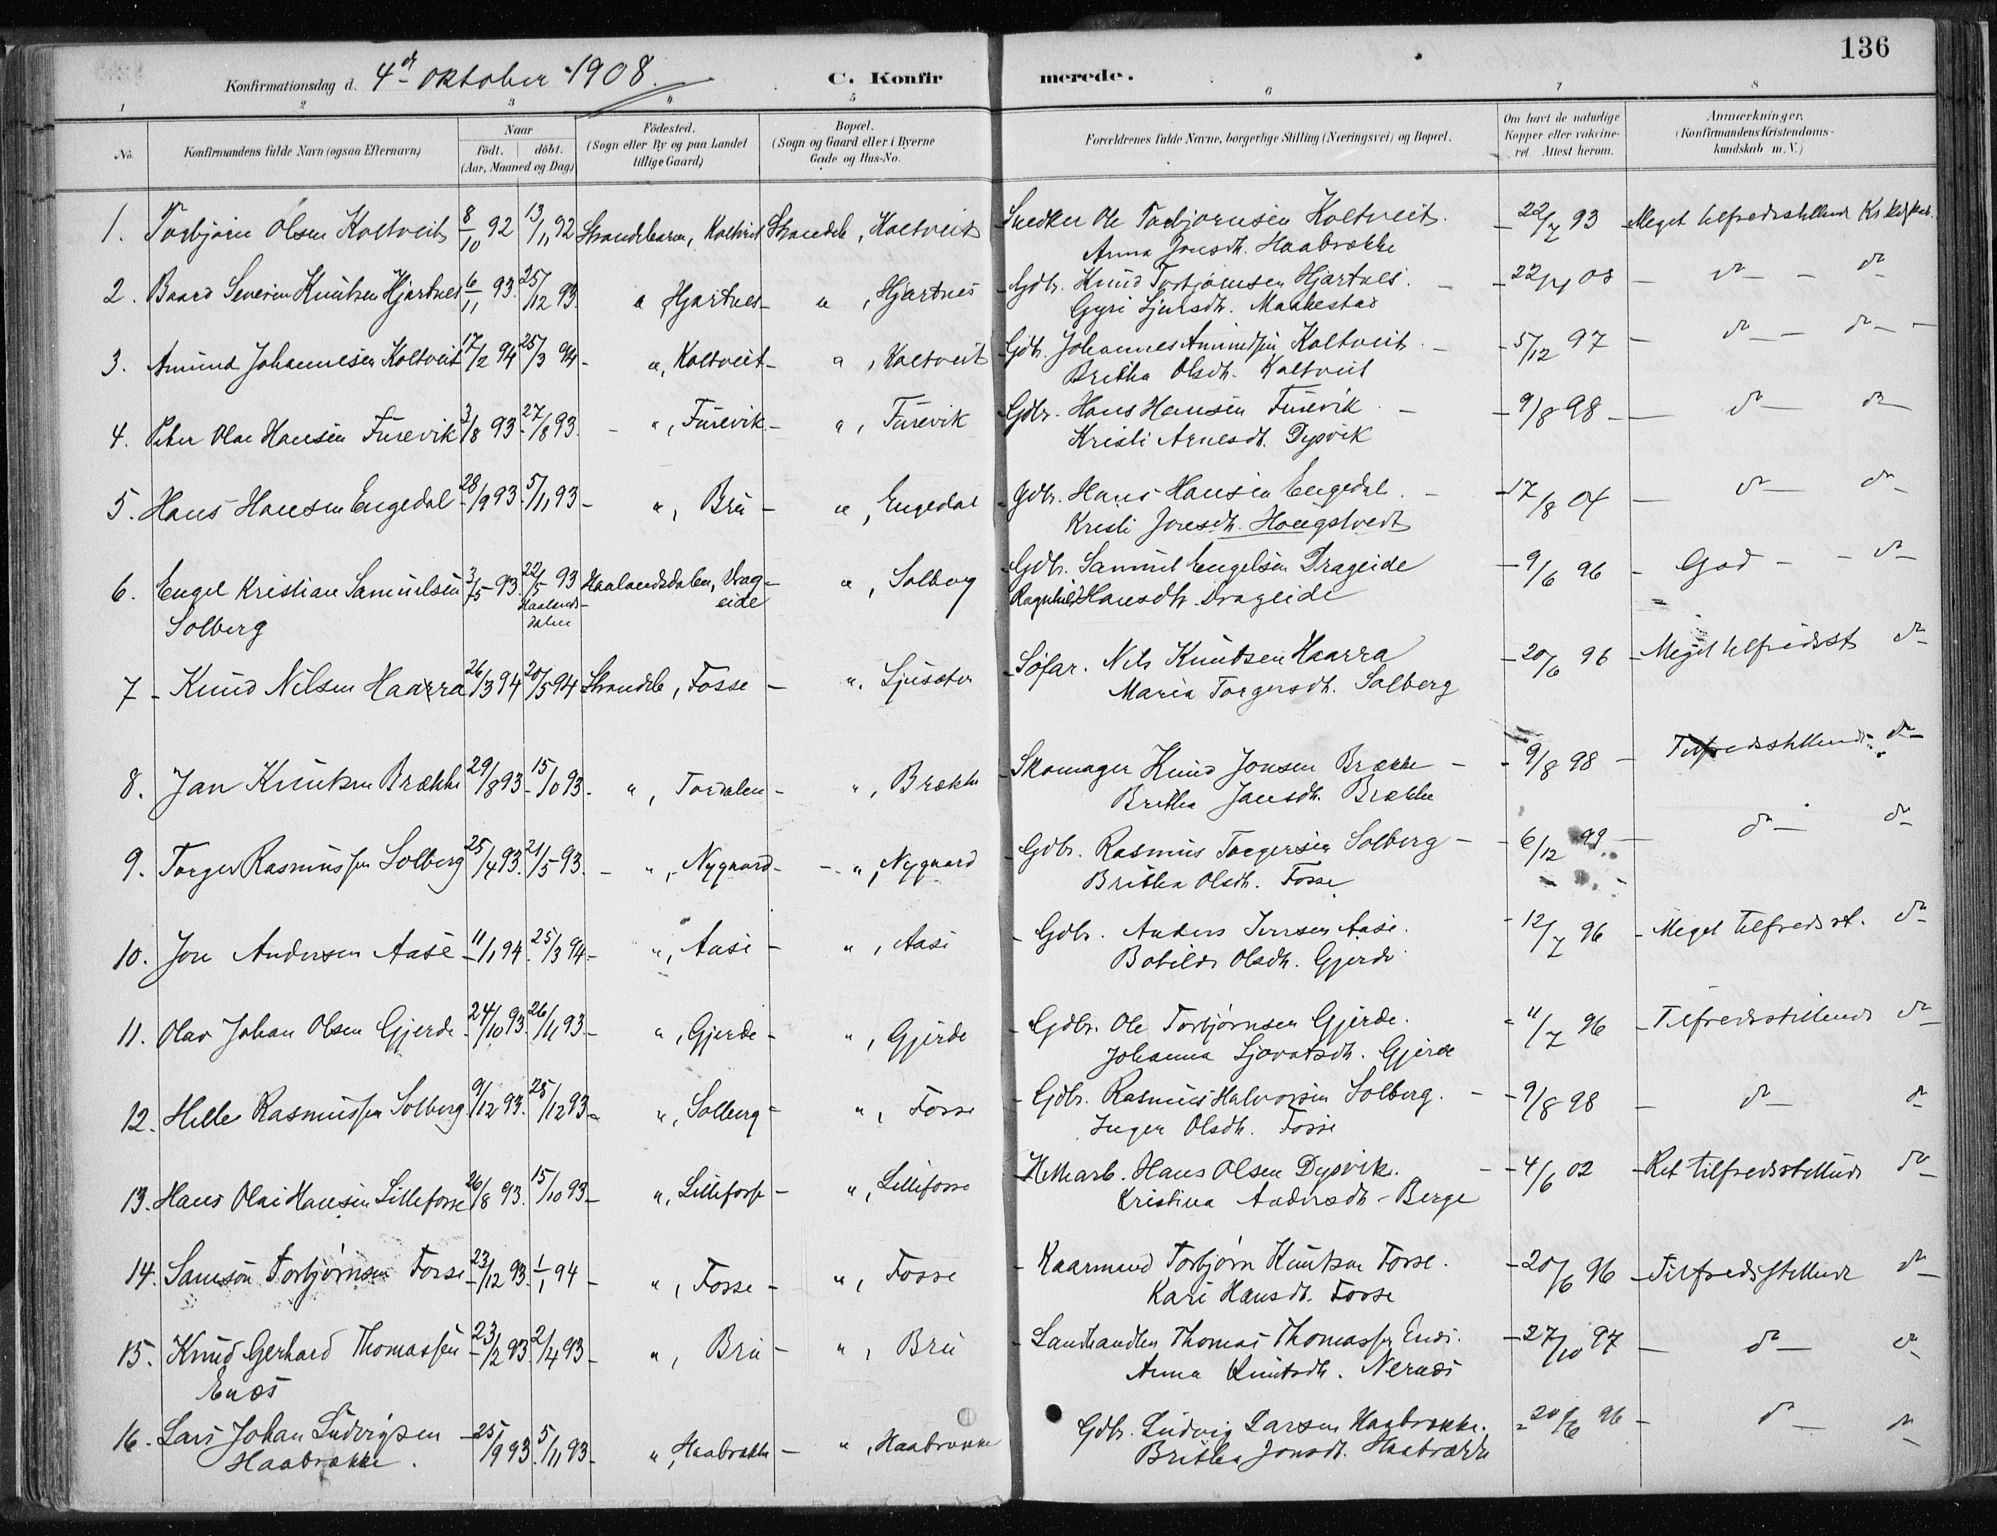 136
Konfirmationsdag d. 4de oktober 1908.
C. Konfirmerede.
1 2 3 4 5 6 7 8
No.
Konfirmandens fulde Navn (ogsaa Efternavn)
Naar
født. døbt.
(Aar, Maaned og Dag)
Fødested.
(Sogn eller By og paa Landet
tillige Gaard)
Bopæl.
(Sogn og Gaard eller i Byerne
Gade og Hus-No.
Forældrenes fulde Navne, borgerlige Stilling (Næringsvei) og Bopæl.
Om havt de naturlige
Kopper eller vaccine-
ret Attest herom.
Anmærkninger.
(Konfirmandens Kristendoms-
kundskab m. V.)
1. Torbjørn Olsen Koltveit 8/10 92 13/11 92 Strandebarm, Koltveit Strandeb, Koltveit Snedker Ole Torbjørnsen Koltveit. – 22/7 93 Meget tilfredsstillende
Anna Jonsdt. Haabrække
2. Baard Severin Knutsen Hjartnes 6/11 93. 25/12 93. " Hjartnes – " , Hjartnes Gdbr. Knud Torbjørnsen Hjartnes. – do – do
Gyri Sjursdt. Maakestad
3. Amund Johannesen Koltveit 17/2 94 25/3 94 – ", Koltveit – " , Koltveit Gdbr. Johannes Amundsen Koltveit. – 5/12 97 – do – do –
Britha Olsdt. Koltveit
4. Peter Olai Hansen Furevik 3/8 93 27/8 93. – ", Furevik – ", Furevik Gdbr. Hans Hansen Furevik. – 9/8 98 – do – do –
Kristi Arnesdt. Dysvik
5. Hans Hansen Engedal 28/9 93. 5/11 93 – ", Bru – ", Engedal Gdbr. Hans Hansen Engedal. – 17/8 04 – do – do –
Kristi Jonsdt. Hougstvedt
6. Engel Kristian Samuelsen 3/5 93. 22/5 93 Haalandsdalen, Drag- ", Solberg Gdbr. Samuel Engelsen Drageide – 9/6 96 – God – do –
Solberg Haalands-
dalen eide Ragnhild Hansdt. Drageide
7 – Knud Nilsen Haarra 26/3 94 20/5 94 Strandeb, Fosse – ". Ljusæter Sofar. Nils Knutsen Haarra – 20/6 96 – Meget tilfredsst do –
Maria Torgersdt. Solberg
8. Jan Knutsen Brække 29/8 93 15/10 93. ", Tordalen – ", Brække Skomager Knud Jonsen Brække – 9/8 98 – Tilfredsstillende do –
Britha Jansdt. Brække
9. Torger Rasmussen Solberg 25/4 93. 21/5 93. – ", Nygaard – ", Nygaard Gdbr. Rasmus Torgersen Solberg – 6/12 99 – do – do
Britha Olsdt. Fosse
10. Jon Andersen Aase 11/1 94. 25/3 94 – ", Aase – ", Aase Gdbr. Anders Iversen Aase. – 12/7 96 – Meget tilfredsst. do –
Botilde Olsdt. Gjerde
11. Olav Johan Olsen Gjerde 24/10 93. 26/11 93 – ", Gjerde – ", Gjerde Gdbr. Ole Torbjørnsen Gjerde. 11/7 96 – Tilfredsstillende do –
Johanna Sjovatsdt. Gjerde
12. Helle Rasmussen Solberg 9/12 93. 25/12 93 – ", Solberg – ", Fosse Gdbr. Rasmus Halvorsen Solberg. – 9/8 98 – do – do
Inger Olsdt. Fosse
13. Hans Olai Hansen Lillefosse 26/8 93. 15/10 93 – ", Lillefosse – ", Lillefosse Hans Olsen Dysvik. – 4/6 02 – Ret tilfredsstillende do –
Kristina Andersdt – Berge
14. Samson Torbjørnsen Fosse 23/12 93. 1/1 94 – ", Fosse – ", Fosse Kaarmand Torbjørn Knutsen Fosse. – 20/6 96 – Tilfredsstillende do –
Kari Hansdt. Fosse
15. Knud Gerhard Thomassen 23/2 93. 2/4 93 – ", Bru – ", Bru Landhandler Thomas Thomassen Enæs. – 27/10 97 – do – do
Enæs Anna Knutsdt. Nernæs
16. Lars Johan Ludvigsen 25/9 93. 5/11 93 – ", Haabrække – ", Haabrække Gdbr. Ludvig Larsen Haabrække. 20/6 96 – do – do
Haabrække. Britha Jonsdt. Haabrække